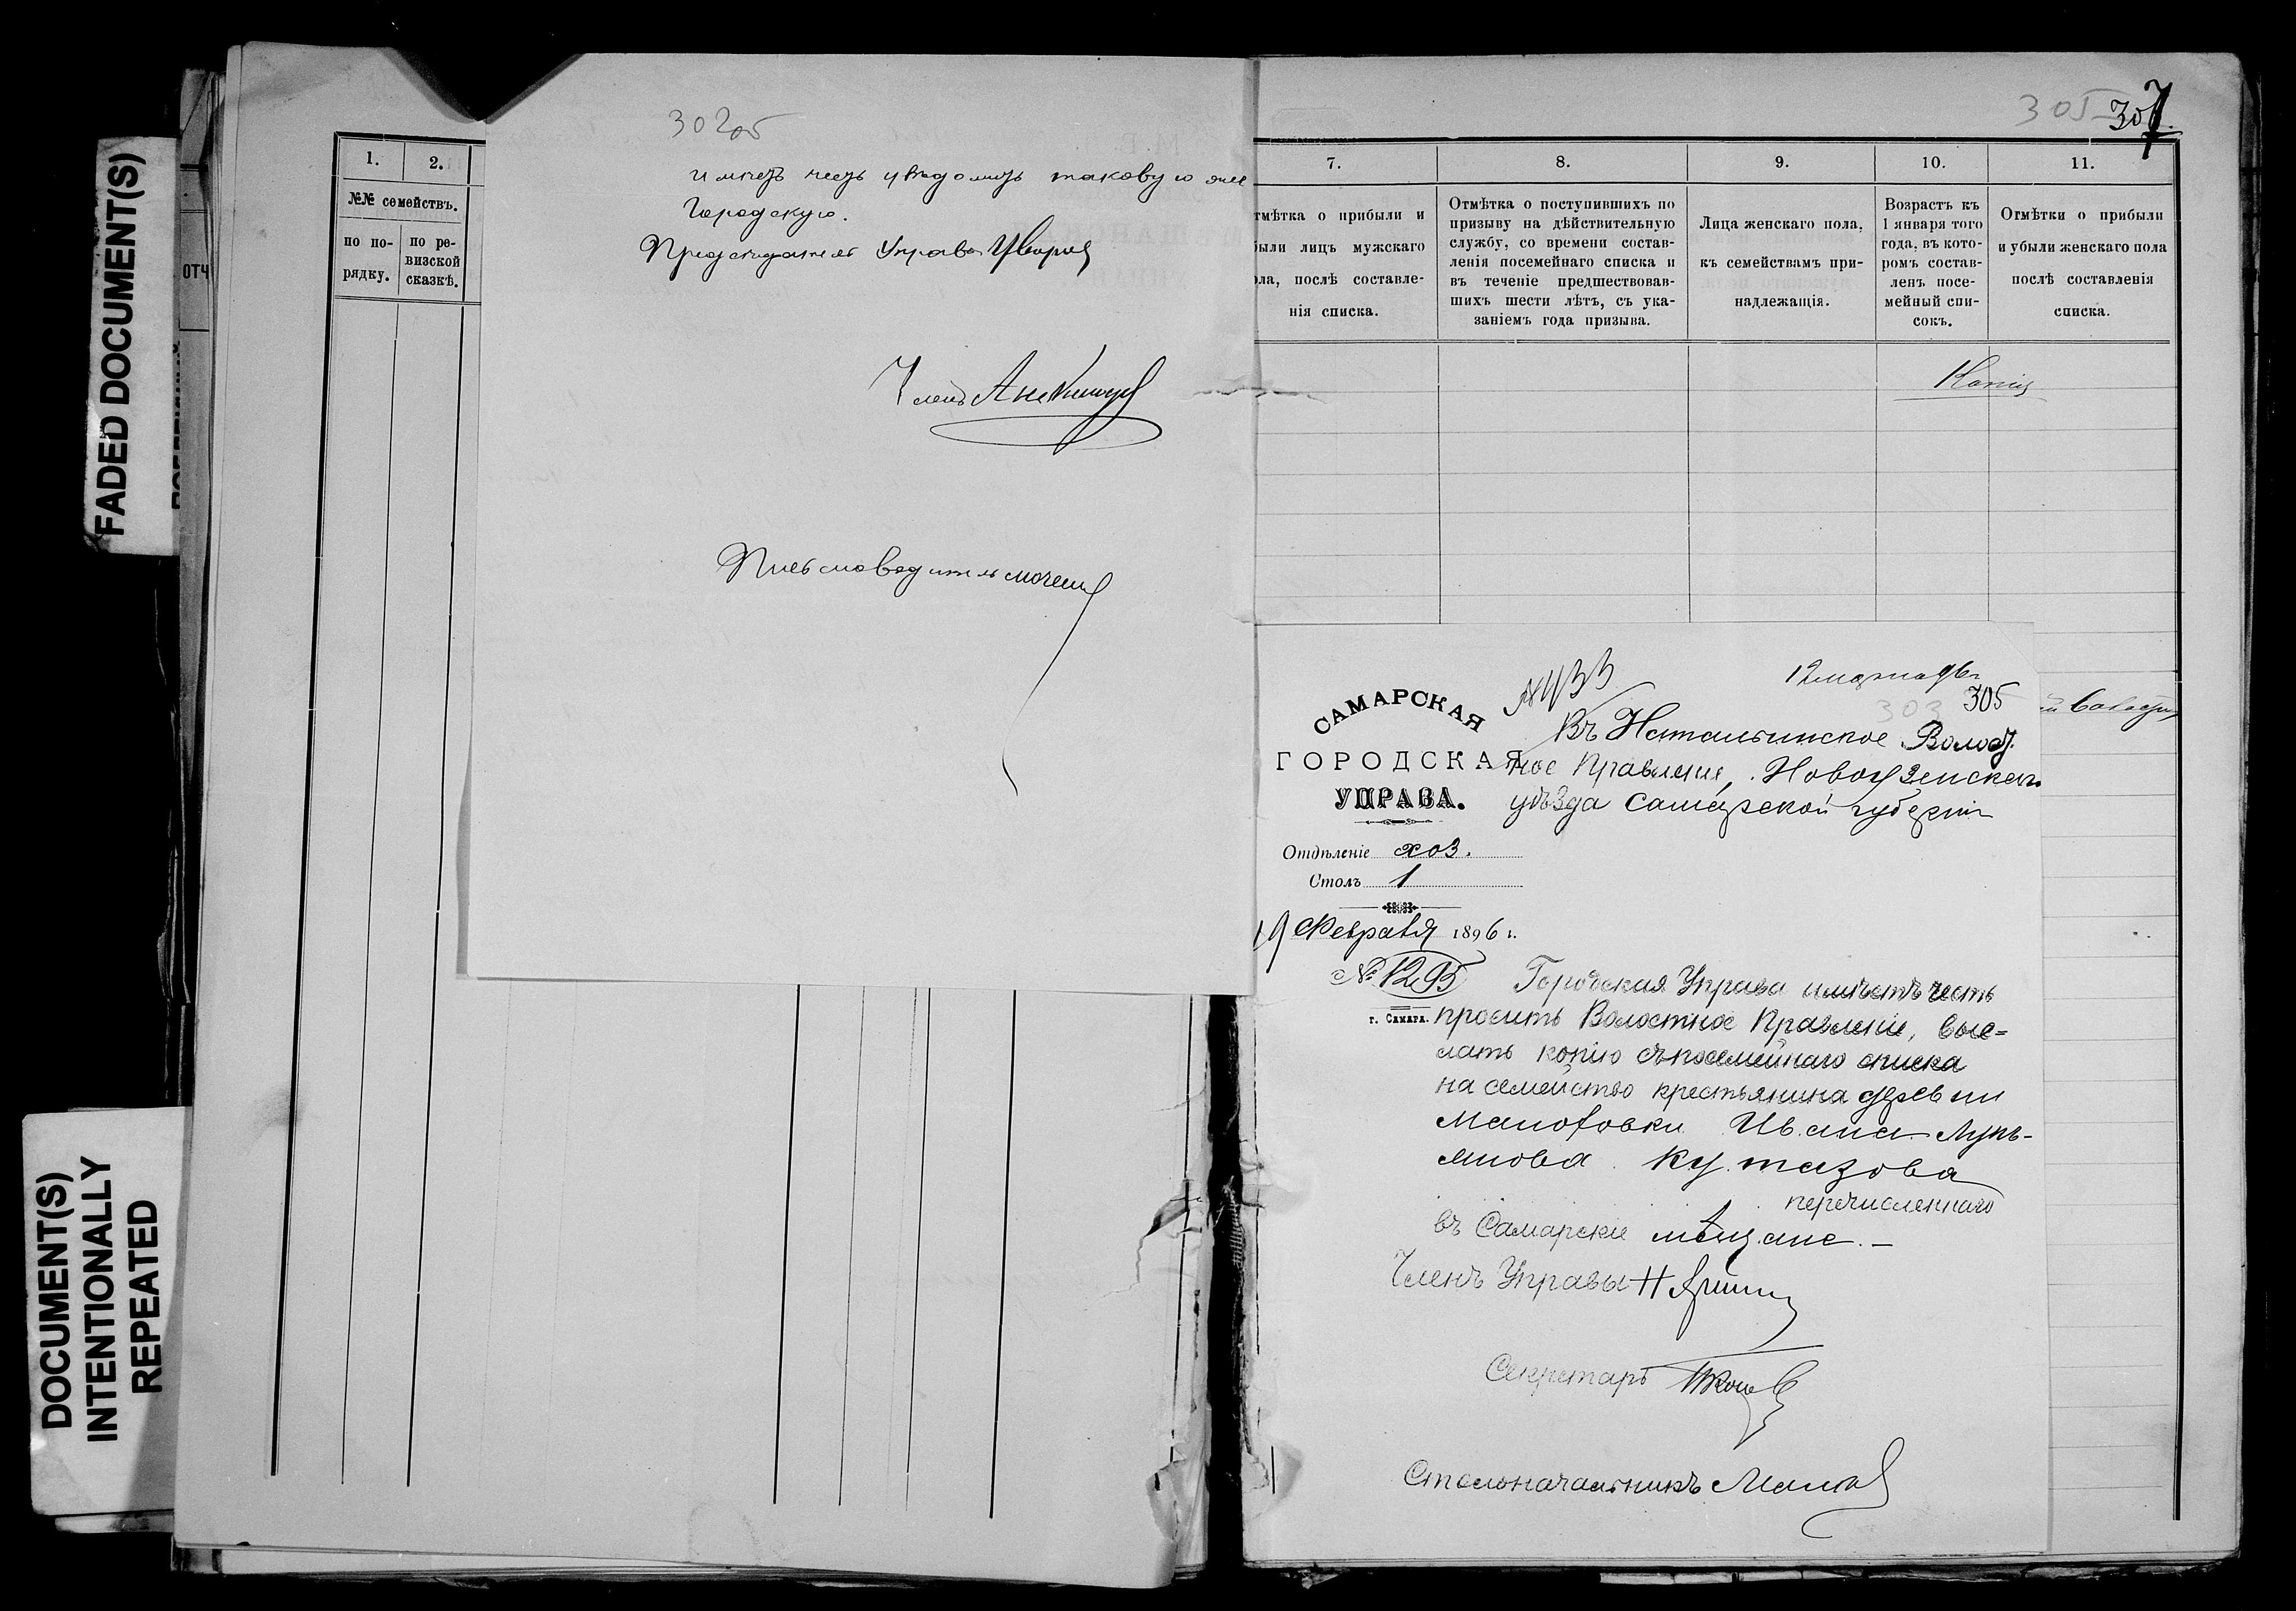 FADED DOCUMENT(S)
DOCUMENT(S)
INTENTIONALLY
REPEATED
ОТЧ
1.
2.
№№ семействъ.
по по-
рядку.
по ре-
визской
сказкѣ.
имѣетъ честь увѣдомить таковую
Городскую.
Председатель Управы
Членъ
Письмоводитель
305
307
7.
8.
9.
10.
11.
тмѣтка о прибыли и
были лицъ мужскаго
ла, послѣ составле-
нія списка.
Отмѣтка о поступившихъ по
призыву на дѣйствительную
службу, со времени состав-
ленія посемейнаго списка и
въ теченіе предшествовав-
шихъ шести лѣтъ, съ ука-
заніемъ года призыва.
Лица женскаго пола,
къ семействамъ при-
надлежащія.
Возрастъ къ
1 января того
года, въ кото-
ромъ состав-
ленъ посе-
мейный спи-
сокъ.
Отмѣтки о прибыли
и убыли женскаго пола
послѣ составленія
списка.
Копія
САМАРСКАЯ
ГОРОДСКАЯ
УПРАВА.
Отдѣленіе хоз.
Столъ 1
19 Февраля 1896 г.
№ 1295
г. Самара.
№ 433
12 марта 96 г.
303 305
Въ Натальинское Волост.
ное Правленіе, Новоузенскаго
уѣзда Самарской губерніи
Городская Управа имѣетъ честь
просить Волостное Правленіе, выс=
лать копію съ посемейнаго списка
на семейство крестьянина деревни
Ивана Лукь-
янова
перечисленнаго
въ Самарскіе мѣщане. –
Членъ Управы Н
Секретарь
Столоначальникъ